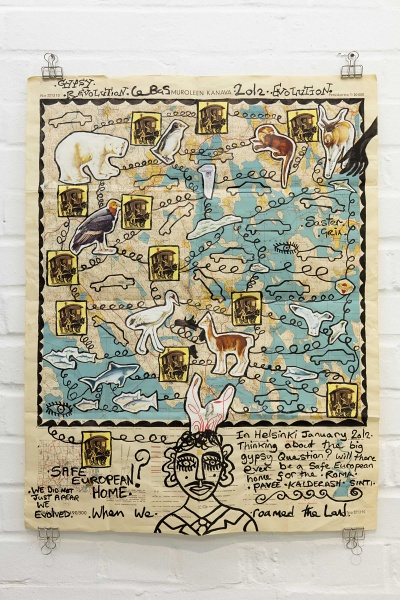 GYPSY.
REVOLUTION. Le BAS MUROLEEN KANAVA 2012. EVOLUTION.
Saster-
Grin
In Helsinki January 2012.
Thinking about the big
Gypsy Question? Will there
ever be a Safe European
home for the. ROMA.
.PAVEE.KALDERASH SINTI.
.SAFE
EUROPEAN
HOME.
!?
.WE DID NOT
JUST APEAR
WE
EVOLVED. When We. roamed the Land